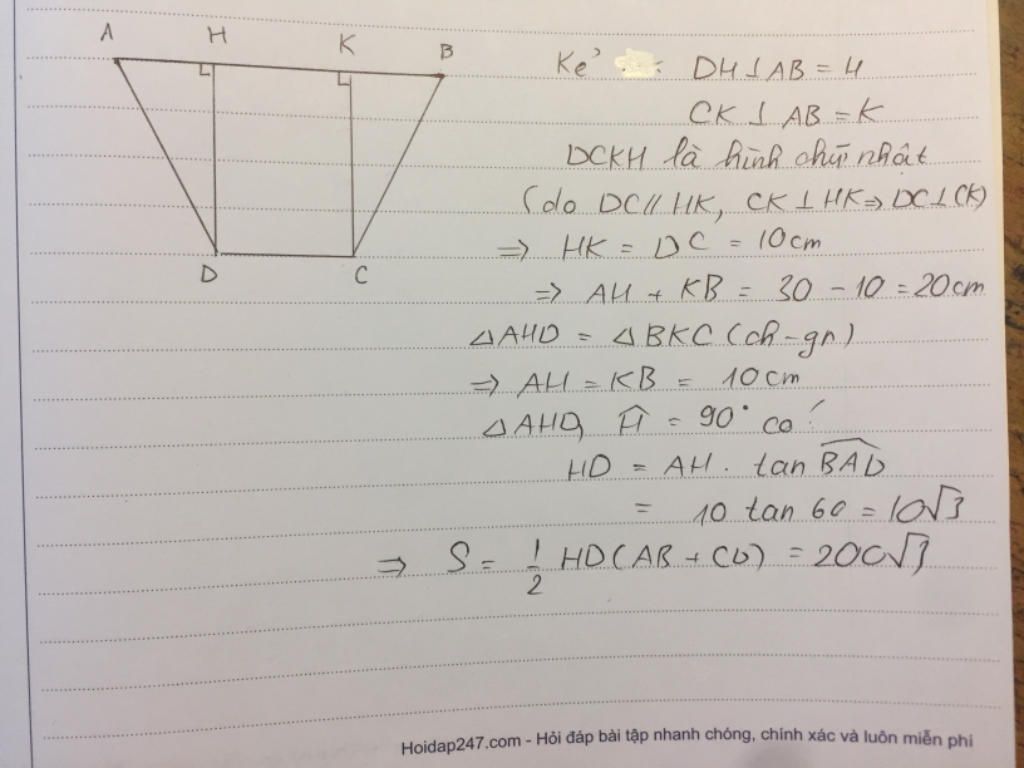 A H K B
D C
Kẻ : DH ⊥ AB = H
CK ⊥ AB = K
DCKH là hình chữ nhật
(do DC // HK, CK ⊥ HK ⇒ DC ⊥ CK)
⇒ HK = DC = 10cm
⇒ AH + KB = 30 - 10 = 20cm
△AHD = △BKC (ch-gn)
⇒ AH = KB = 10cm
△AHD, Ĥ = 90° có:
HD = AH . tan BAD̂
= 10 tan 60 = 10√3
⇒ S = 1/2 HD(AB + CD) = 200√3
Hoidap247.com - Hỏi đáp bài tập nhanh chóng, chính xác và luôn miễn phí